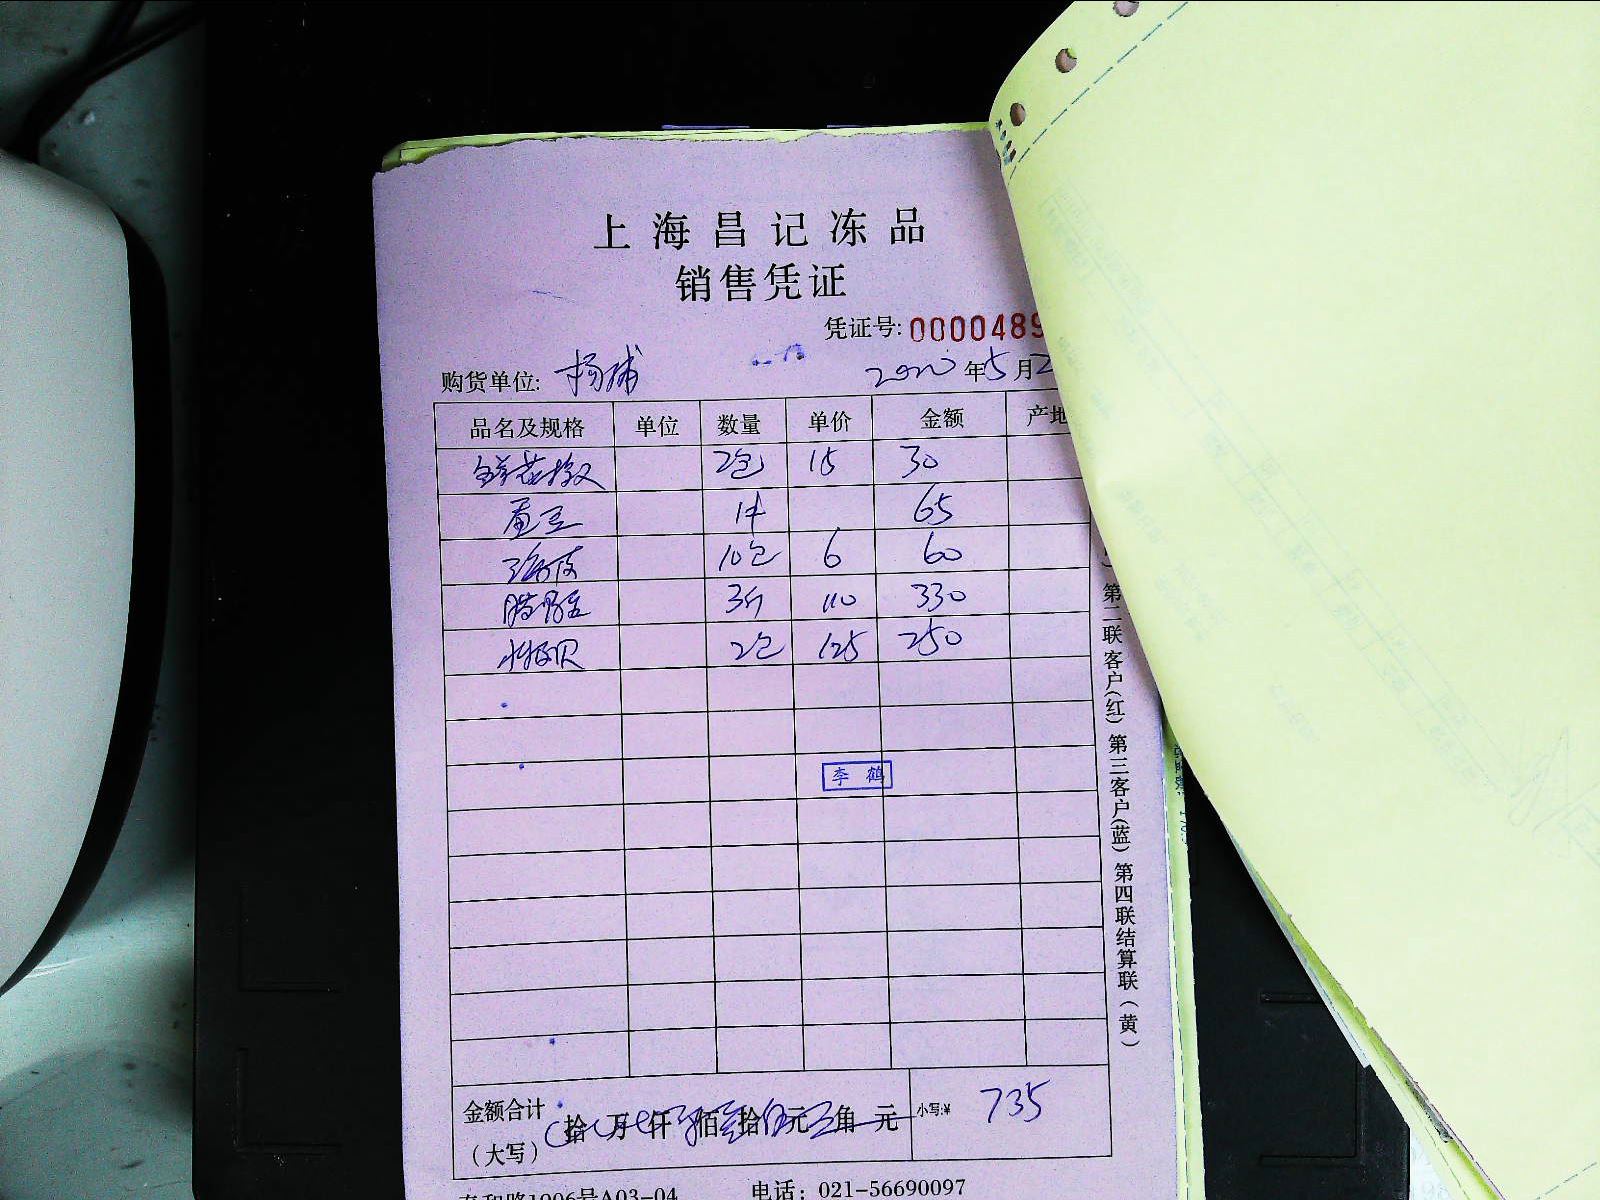 上海昌记冻品
销售凭证
凭证号: 0000489
购货单位: 杨浦 2020年5月2
品名及规格 单位 数量 单价 金额 产地
2包 15 30
1件 65
10包 6 60
3斤 110 330
2包 125 250
李鹤
金额合计 拾 万 仟 佰 拾 元 角 元 小写:¥ 735
（大写）
泰和路1006号A03-04 电话：021-56690097
第二联客户(红) 第三客户(蓝) 第四联结算联(黄)